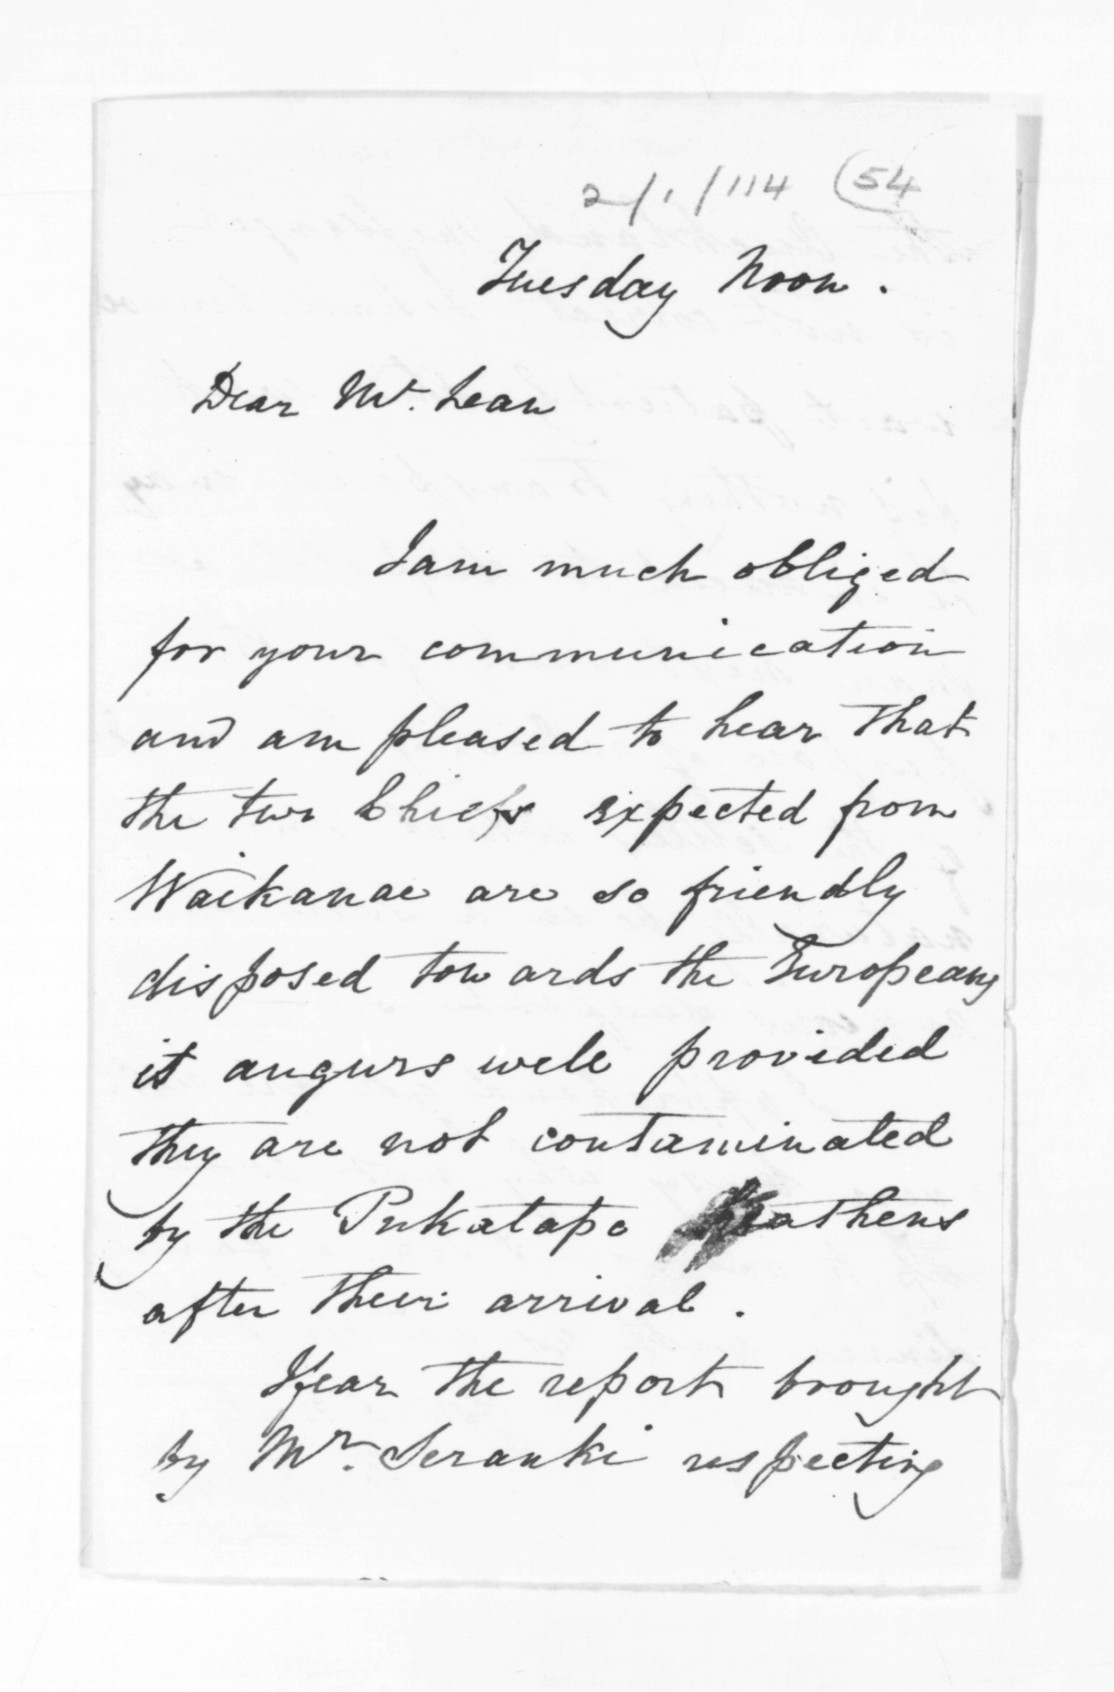 2/1/114 (54
Tuesday Noon.
Dear Mc. Lean
I am much obliged
for your communication
and am pleased to hear that
the two Chiefs expected from
Waikanae are so friendly
disposed towards the Europeans
it augurs well provided
they are not contaminated
by the Pukatapo
after their arrival.
I fear the report brought
by Mr. respecting